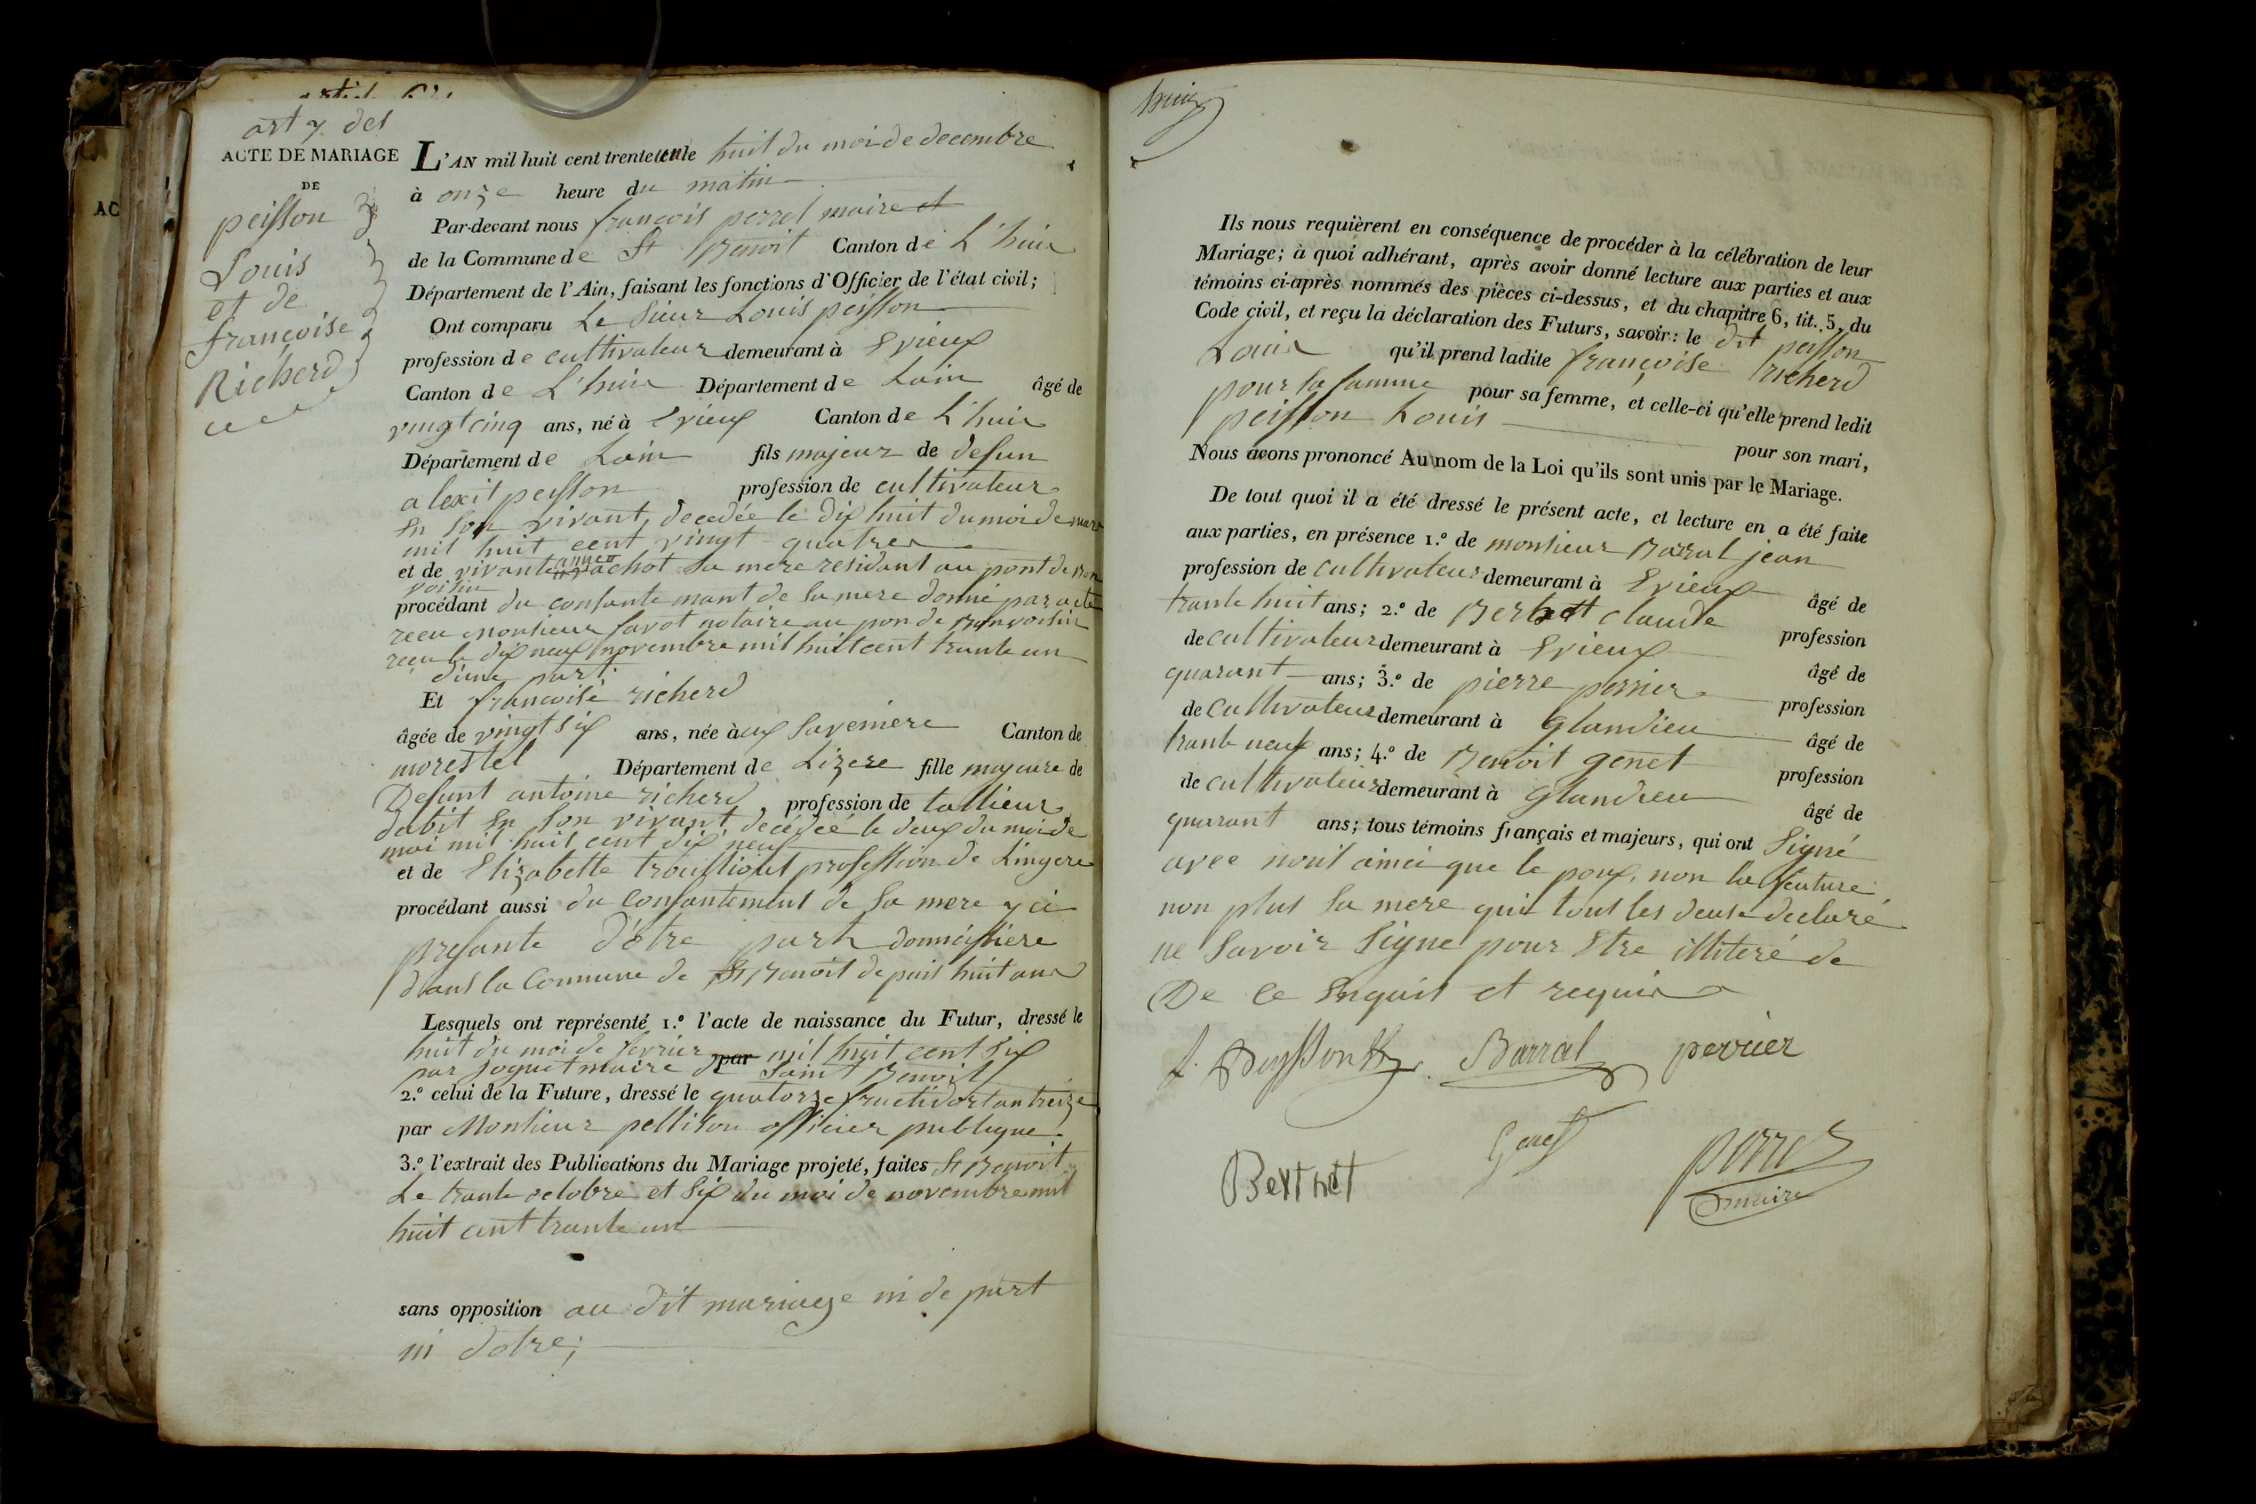 art 7 des
ACTE DE MARIAGE
DE
peisson
Louis
et de
françoise
Richerd
AC
L'AN mil huit cent trente un le huit du moi de decembre
à onze heure du matin
Par-devant nous françois perret maire et
de la Commune de St Benoit Canton de L'huis
Département de l'Ain, faisant les fonctions d'Officier de l'état civil;
Ont comparu Le Sieur Louis peisson
profession de cultivateur demeurant à Evieux
Canton de L'huis Département de Lain âgé de
vingt cinq ans, né à Evieux Canton de L'huis
Département de Lain fils majeur de defun
alexit peisson profession de cultivateur
En son vivant, decedée le dix huit du moi de mars
mil huit cent vingt quatre
et de vivante achot sa mere residant au pont de Bon
voisin
procédant du consante mant de sa mere donné par acte
recu Monsieur favot notaire au pon de Bonvoisin
recu le dix neuf novembre mil huit cent trante un
d'une part
Et françoise richerd
âgée de vingt six ans, née à ux Saveniere Canton de
morestel Département de Lizere fille majeure de
Defunt antoine richerd, profession de tallieur
dabit En son vivant decédeé le deux du moi de
moi mil huit cent dix neuf
et de Elizabette trouilliout profession de Lingere
procédant aussi du consantement de sa mere y ci
presante D'ôtre part domiciliere
dans la Commune de St Benoit depuis huit ans
Lesquels ont représenté 1.º l'acte de naissance du Futur, dressé le
huit du moi de fevrier par mil huit cent six
par joguet maire de Saint Benoit
2.º celui de la Future, dressé le quatorze fructidor lan treize
par Monsieur pellison officier publique.
3.º l'extrait des Publications du Mariage projeté, faites St Benoit
Le trante octobre et six du moi de novembre mil
huit cent trante un
sans opposition au dit mariage ni de part
ni dotre;
huis
Ils nous requièrent en conséquence de procéder à la célébration de leur
Mariage; à quoi adhérant, après avoir donné lecture aux parties et aux
témoins ci-après nommés des pièces ci-dessus, et du chapitre 6, tit. 5, du
Code civil, et reçu la déclaration des Futurs, savoir: le dit peisson
Louis qu'il prend ladite françoise richerd
pour sa famme pour sa femme, et celle-ci qu'elle prend ledit
peisson Louis pour son mari,
Nous avons prononcé Au nom de la Loi qu'ils sont unis par le Mariage.
De tout quoi il a été dressé le présent acte, et lecture en a été faite
aux parties, en présence 1.º de monsieur Barral jean
profession de cultivateur demeurant à Evieux âgé de
trante huit ans; 2.º de Berthet claude profession
de cultivateur demeurant à Evieux âgé de
quarant ans; 3.º de pierre perrier profession
de cultivateur demeurant à Glandieu âgé de
trante neuf ans; 4.º de Benoit genet profession
de cultivateur demeurant à Glandieu âgé de
quarant ans; tous témoins français et majeurs, qui ont Signé
avec nous ainci que le poux, non la feuture
non plus sa mere qui tous les deuse declaré
ne Savoir Signe pour Etre illiteré de
De ce Enquis et requis
L. Peysson Barral perrier
Genet
Berthet
perret
maire